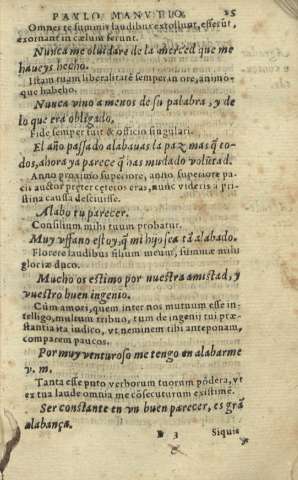 PAVLO MANVTIO. 25
Omnes te summis laudibus extollunt, efferūt,
exornant in cælum ferunt.
Nunca me oluidare de la merced que me
haueys hecho.
Istam tuam liberalitatē semper in ore, animo-
que habebo.
Nunca vino a menos de su palabra, y de
lo que era obligado.
Fide semper fuit & officio singulari.
El año passado alabauas la paz mas q̄ to-
dos, ahora ya parece q̄ has mudado volūtad.
Anno proximo superiore, anno superiore pa-
cis auctor præter ceteros eras, nunc videris a pri-
stina caussa desciuisse.
Alabo tu parecer.
Consilium mihi tuum probatur.
Muy vffano estoy, q̄ mi hijo sea tā alabado.
Florere laudibus filium meum, summæ mihi
gloriæ duco.
Mucho os estimo por vuestra amistad, y
vuestro buen ingenio.
Cùm amore, quem inter nos mutuum esse in-
telligo, multum tribuo, tum de ingenij tui præ-
stantia ita iudico, vt neminem tibi anteponam,
comparem paucos.
Por muy venturoso me tengo en alabarme
v. m.
Tanta esse puto verborum tuorum pōdera, vt
ex tua laude omnia me cōsecuturum existimē.
Ser constante en vn buen parecer, es grā
alabança.
3 Siquis